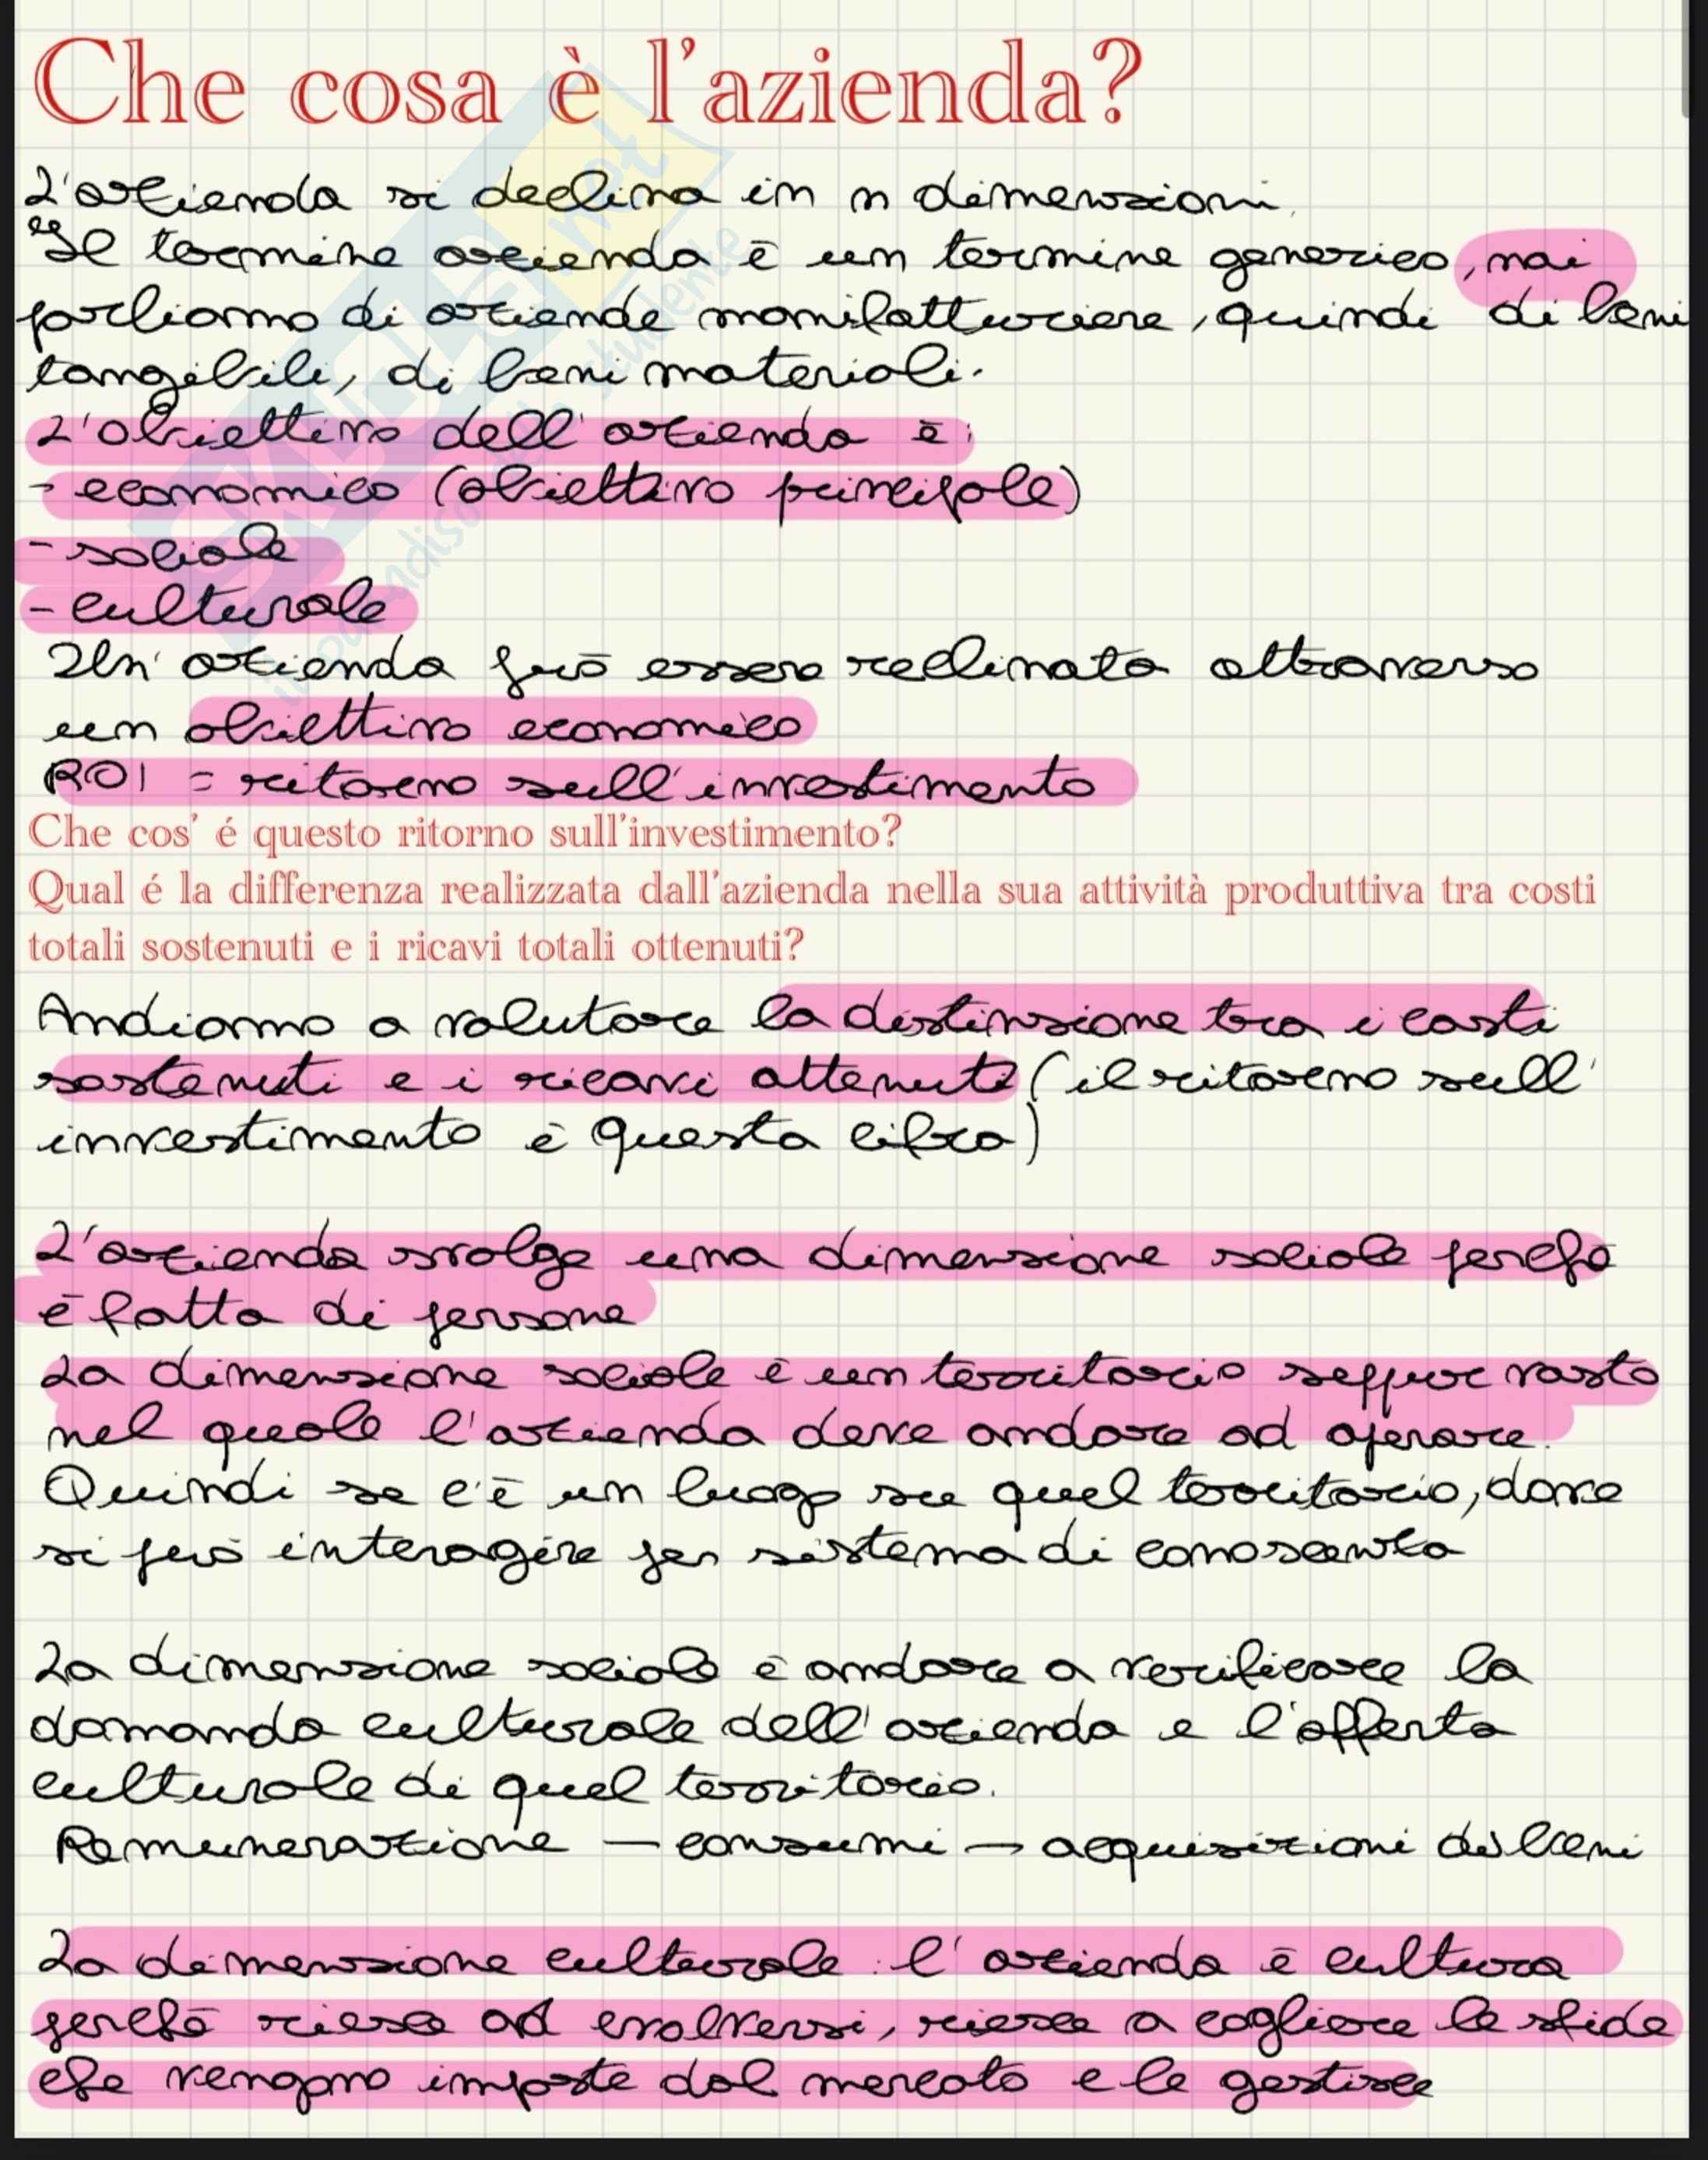 Che cosa è l'azienda?
L'azienda si declina in n dimensioni.
Il termine azienda è un termine generico, noi
parliamo di aziende manifatturiere, quindi di beni
tangibili, di beni materiali.
L'obiettivo dell'azienda è:
- economico (obiettivo principale)
- sociale
- culturale
Un'azienda può essere reclinata attraverso
un obiettivo economico
ROI = ritorno sull'investimento
Che cos' é questo ritorno sull'investimento?
Qual é la differenza realizzata dall'azienda nella sua attività produttiva tra costi
totali sostenuti e i ricavi totali ottenuti?
Andiamo a valutare la distinzione tra i costi
sostenuti e i ricavi ottenuti (il ritorno sull'
investimento è questa cifra)
L'azienda svolge una dimensione sociale perché
è fatta di persone
La dimensione sociale è un territorio seppur vasto
nel quale l'azienda deve andare ad operare.
Quindi se c'è un luogo su quel territorio, dove
si può interagire per sistema di conoscenza
La dimensione sociale è andare a verificare la
domanda culturale dell'azienda e l'offerta
culturale di quel territorio.
Remunerazione – consumi – acquisizioni di beni
La dimensione culturale: l'azienda è cultura
perché riesce ad evolversi, riesce a cogliere le sfide
che vengono imposte dal mercato e le gestisce